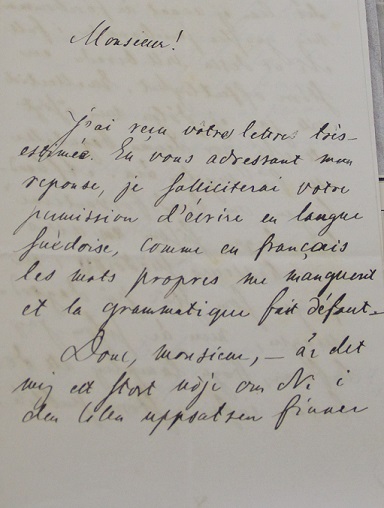 Monsieur!
J'ai reçu votre lettre très
estimée. En vous adressant mon
reponse, je solliciterai votre
permission d'écrire en langue
suèdoise, comme en français
les mots propres me manquent
et la grammatique fait défaut.
Donc, monsieur, – är det
mig ett stort nöje om Ni i
den lilla uppsatsen finner